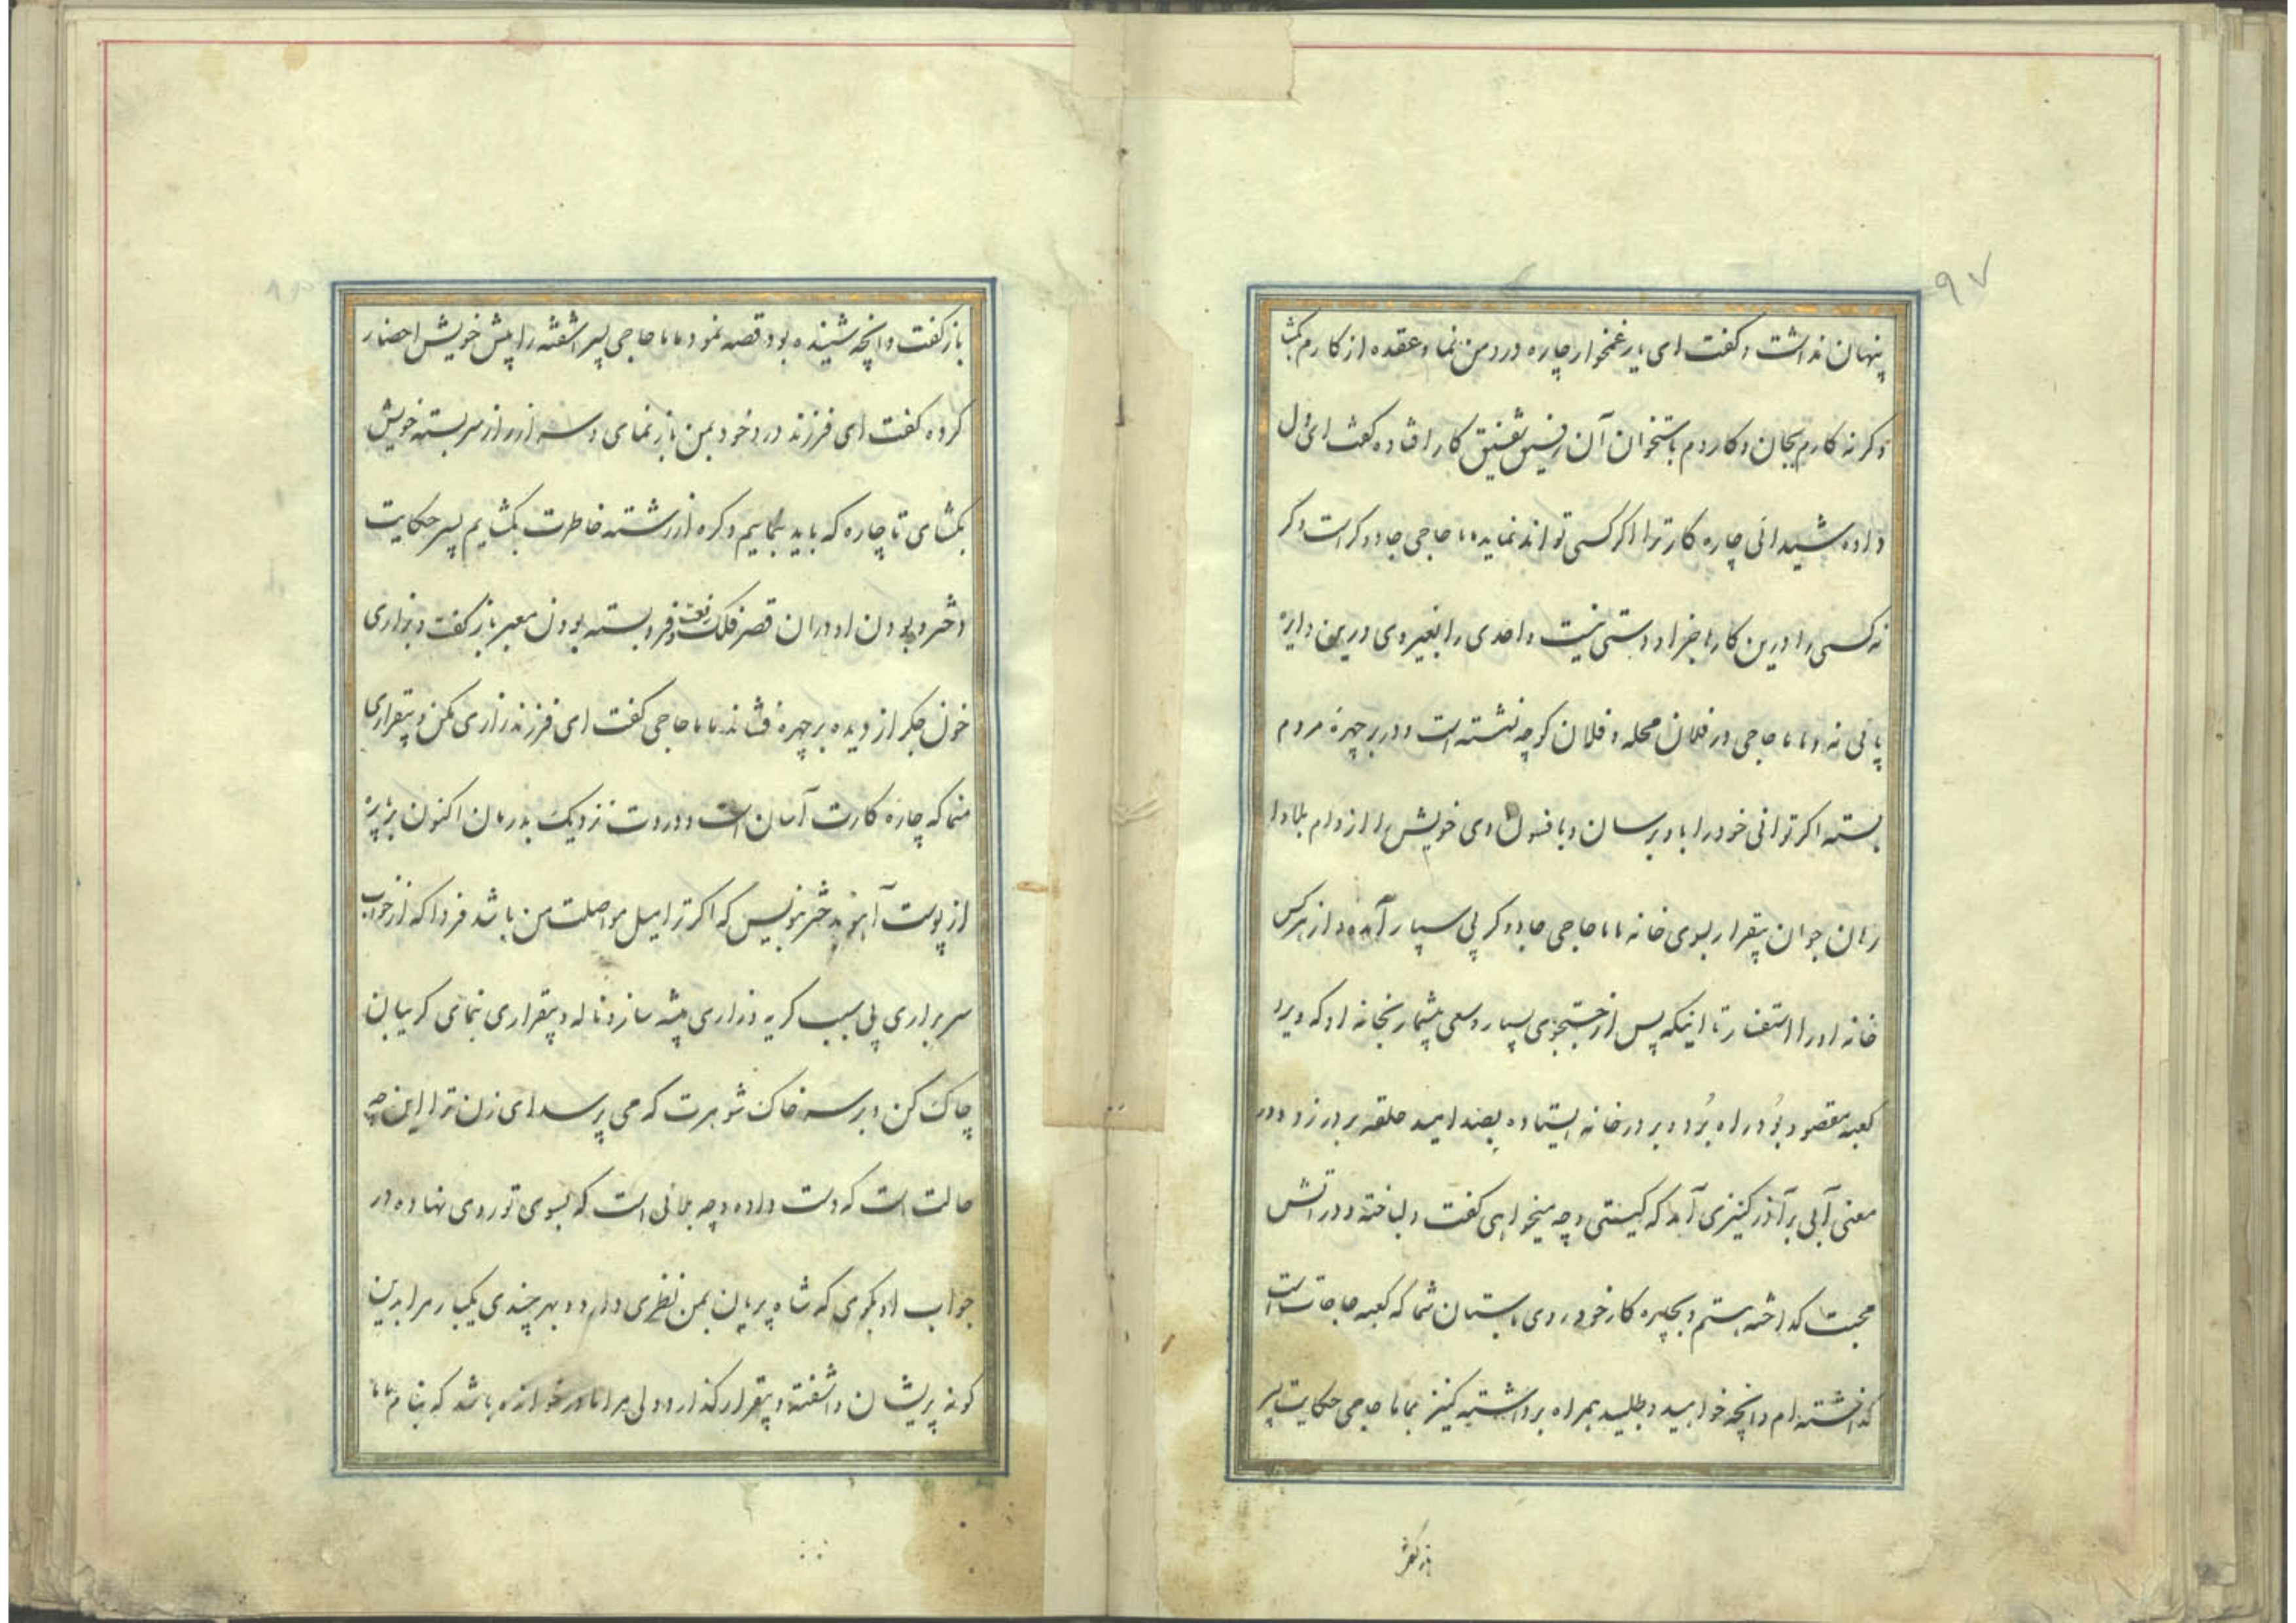 ۹۷
پنهان نداشت و گفت ای یار غمخوار چاره درد من نما و عقده از کارم بکشا
وکرنه کارم بجان و کاردم باستخوان آن رفیق شفیق کار افتاده کفت ای دل
داده شیدائی چاره کار ترا اکر کسی تواند نماید ماما حاجی جادوکر است و کر
نه کسی را درین کارها جز او دستی نیست و احدی را بغیر وی درین دایره
پائی نه و ماما حاجی در فلان محله و فلان کوچه نشسته است و در بر چهره مردم
بسته اکر توانی خود را باو برسان و بافسون وی خویش را از دام بلا وا
رهان جوان بیقرار بسوی خانه ماما حاجی جادوکر پی سپار آمده و از هرکس
خانه او را استفسار تا اینکه پس از جستجوی بسیار و سعی بیشمار بخانه او که ویرا
کعبه مقصود بود راه برد و بر در خانه ایستاده بصد امید حلقه بر در زد و در
معنی آبی بر آذر کنیزی آمد که کیستی و چه میخواهی کفت دلباخته و در آتش
محبت کداخته هستم و بچاره کار خود روی باستان شما که کعبه حاجات است
کذاشته ام و آنچه خواهید و طلبید همراه برداشته کنیز بماما حاجی حکایت پسر
بازکفت
باز کفت و آنچه شنیده بود قصه نمود ماما حاجی پسر آشفته را پیش خویش احضار
کرده کفت ای فرزند درد خود بمن باز نمای و سر از راز سر بسته خویش
بکشای تا چاره که باید بنماییم و کره از رشته خاطرت بکشایم پسر حکایت
دختر و بودن او در ان قصر فلک رفعت و فرو بسته بودن معبر باز کفت و بزاری
خون جکر از دیده بر چهره فشاند ماما حاجی کفت ای فرزند زاری مکن و بیقراری
منما که چاره کارت آسان است و دردت نزدیک بدرمان اکنون بر پره
از پوست آهو بدختر بنویس که اکر ترا میل مواصلت من باشد فردا که از خواب
سر براری بی سبب کریه و زاری پیشه ساز و ناله و بیقراری نمای کریبان
چاک کن و بر سر خاک شوهرت که می پرسد ای زن ترا این چه
حالت است که دست داده و چه بلائی است که بسوی تو روی نهاده در
جواب او بکوی که شاه پریان بمن نظری دارد و بهر چندی یکبار مرا بدین
کونه پریشان و آشفته و بیقرار کذارد ولی مرا مادر خوانده باشد که بنام ماما